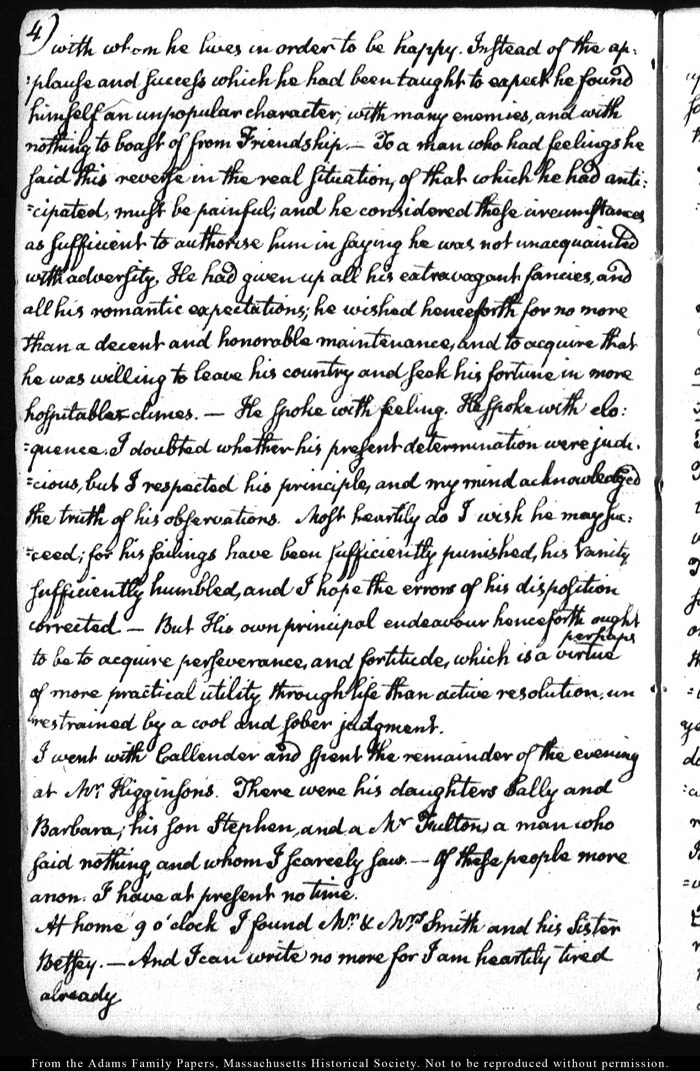 4)
with whom he lives in order to be happy. Instead of the ap:
:plause and success which he had been taught to expect he found
himself an unpopular character, with many enemies, and with
nothing to boast of from Friendship.— To a man who had feelings he
said this reverse in the real situation, of that which he had anti:
:cipated, must be painful; and he considered these circumstances
as sufficient to authorise him in saying he was not unacquainted
with adversity. He had given up all his extravagant fancies, and
all his romantic expectations; he wished henceforth for no more
than a decent and honorable maintenance, and to acquire that
he was willing to leave his country and seek his fortune in more
hospitable climes. — He spoke with feeling. He spoke with elo:
:quence. I doubted whether his present determination were judi:
:cious, but I respected his principle, and my mind acknowledged
the truth of his observations. Most heartily do I wish he may suc:
:ceed; for his failings have been sufficiently punished, his vanity
sufficiently humbled, and I hope the errors of his disposition
corrected. — But His own principal endeavour henceforth ought
perhaps
to be to acquire perseverance, and fortitude, which is a virtue
of more practical utility through life than active resolution, un
restrained by a cool and sober judgment.
I went with Callender and spent the remainder of the evening
at Mr. Higginson's. There were his daughters Sally and
Barbara; his son Stephen, and a Mr Fulton, a man who
said nothing, and whom I scarcely saw. — Of these people more
anon. I have at present no time.
At home 9 o'clock I found Mr. & Mrs. Smith and his Sister
Betsey. — And I can write no more for I am heartily tired
already
From the Adams Family Papers, Massachusetts Historical Society. Not to be reproduced without permission.